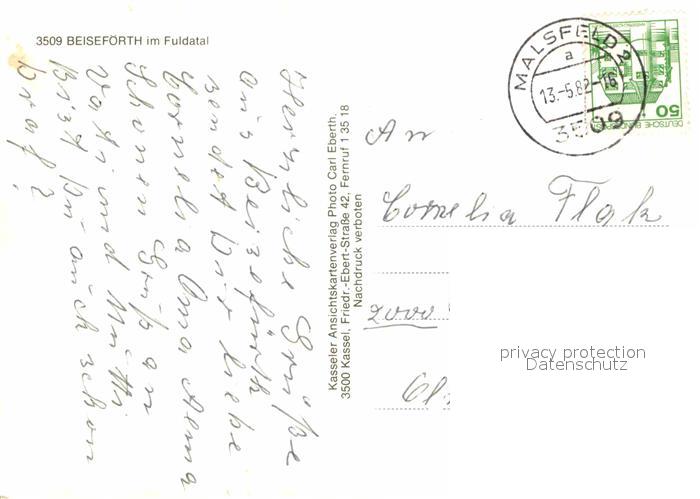 3509 BEISEFÖRTH im Fuldatal
Herzliche Grüße
aus Beiseförth
sendet Dir liebe
Cornelia Oma Alma
Schönen Gruß an
Vati und Mutti
Bist Du auch schon
brav?
Kasseler Ansichtskartenverlag Photo Carl Eberth,
3500 Kassel, Friedr.-Ebert-Straße 42, Fernruf 1 35 18
Nachdruck verboten
MALSFELD 2
a
13.-5.82-16
3509
50
DEUTSCHE BUNDESPOST
An
Cornelia Flak
2000
privacy protection
Datenschutz